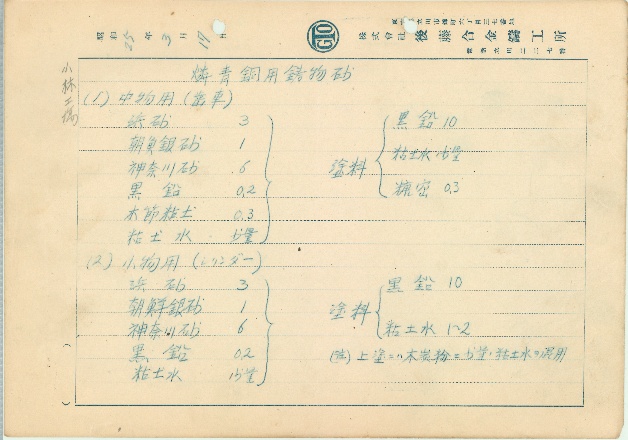 昭和25年3月17日
株式會社 後藤合金鑄工所
GTO
燐青銅用鋳物砂
(1) 中物用 (歯車)
浜砂 3
朝鮮銀砂 1
神奈川砂 6
黒鉛 0.2
木節粘土 0.3
粘土水 少量
塗料
黒鉛 10
粘土水 少量
糖密 0.3
(2) 小物用 (シリンダー)
浜砂 3
朝鮮銀砂 1
神奈川砂 6
黒鉛 0.2
粘土水 少量
塗料
黒鉛 10
粘土水 1~2
(註) 上塗ニハ木炭粉ニ少量ノ粘土水ヲ混用